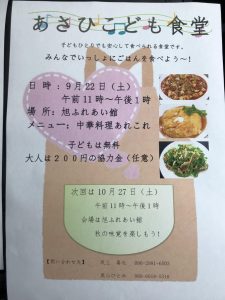 あさひこども食堂
子どもひとりでも安心して食べられる食堂です。
みんなでいっしょにごはんを食べよう～！
日時：９月２２日（土）
午前１１時～午後１時
場所：旭ふれあい館
メニュー：中華料理あれこれ
子どもは無料
大人は２００円の協力金（任意）
次回は１０月２７日（土）
午前１１時～午後１時
会場は旭ふれあい館
秋の味覚を楽しもう！
【問い合わせ先】